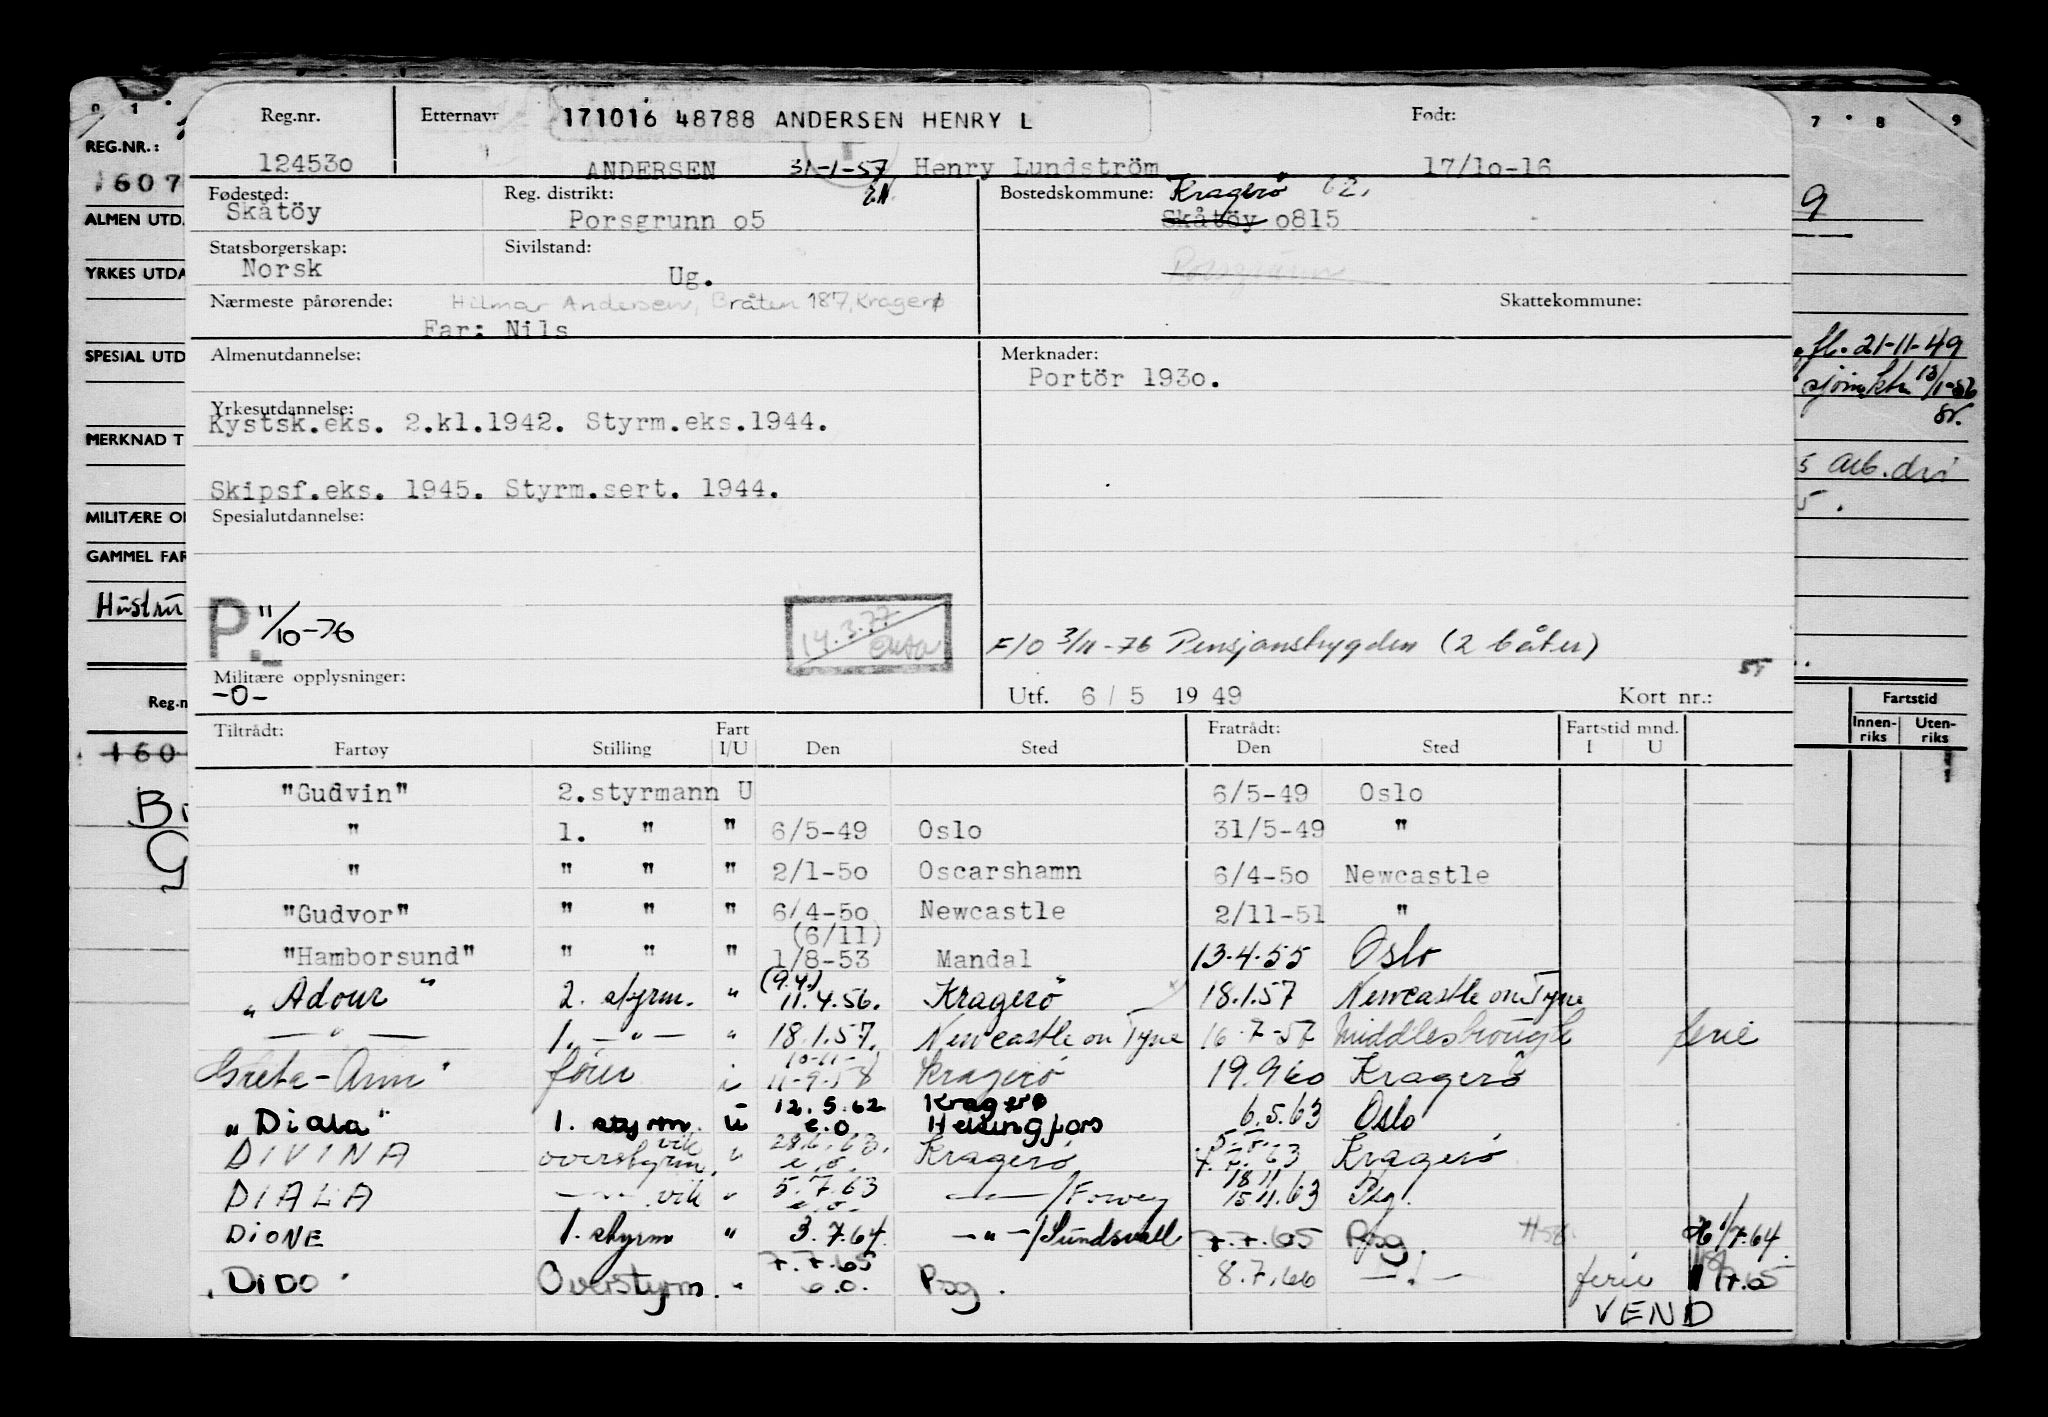 Reg.nr. Etternavn 171016 48788 ANDERSEN HENRY L Født:
124530 ANDERSEN 31-1-57 Henry Lundström 17/10-16
Fødested: Reg. distrikt: Bostedskommune: Kragerö 62.
Skåtöy Porsgrunn 05 Skåtöy 0815
Statsborgerskap: Sivilstand:
Norsk Ug. Porsgrunn
Nærmeste pårørende: Hilmar Andersen, Bråten 187, Kragerø Skattekommune:
Far: Nils
Almenutdannelse: Merknader:
Portör 1930.
Yrkesutdannelse:
Kystsk.eks. 2.kl.1942. Styrm.eks.1944.
Skipsf.eks. 1945. Styrm.sert. 1944.
Spesialutdannelse:
P. 11/10-76 14.3.77
F/O 3/11-76 Pensjonstrygden (2 båter)
Militære opplysninger:
-0- Utf. 6/5 1949 Kort nr.:
Tiltrådt: Fart Fratrådt: Fartstid mnd.
Fartøy Stilling I/U Den Sted Den Sted I U
"Gudvin" 2.styrmann U 6/5-49 Oslo
" 1. " " 6/5-49 Oslo 31/5-49 "
" " " " 2/1-50 Oscarshamn 6/4-50 Newcastle
"Gudvor" " " " 6/4-50 Newcastle 2/11-51 "
(6/11)
"Hamborsund" " " " 1/8-53 Mandal 13.4.55 Oslo
(9.4.)
"Adour" 2. styrm. " 11.4.56. Kragerö 18.1.57 Newcastle on Tyne
— " — 1. — " — " 18.1.57. Newcastle on Tyne 16-7-57 Middlesbrough ferie
10-11-
Greta-Ann" förer i 11-9-58 Kragerö 19.9.60 Kragerö
12.5.62 Kragerø
"Diala" 1. styrm. u e.o. Helsingfors 6.5.63 Oslo
DIVINA overstyrm. vik " 28.6.63. e.o. Kragerö 4.7.63 Kragerö
DIALA — " — vik " 5.7.63 e.o. — " — / 18.11 15.11.63 Psg.
DIONE 1. styrm " 3.7.64. — " — /Sundsvall 7.7.65 Psg. 1/7.64
7.7.65
"DIDO" Overstyrm. " e.o. Psg. 8.7.66 — " — ferie
VEND
0 1 7 8 9
REG.NR.:
1607
ALMEN UTD.
YRKES UTDA
SPESIAL UTD
MERKNAD T
MILITÆRE O
GAMMEL FAR
Hustru
Reg.n
160
9
fl. 21-11-49
sjöm.ktr 13/1-56
5 arb.
5.
Fartstid
Innen-riks Uten-riks